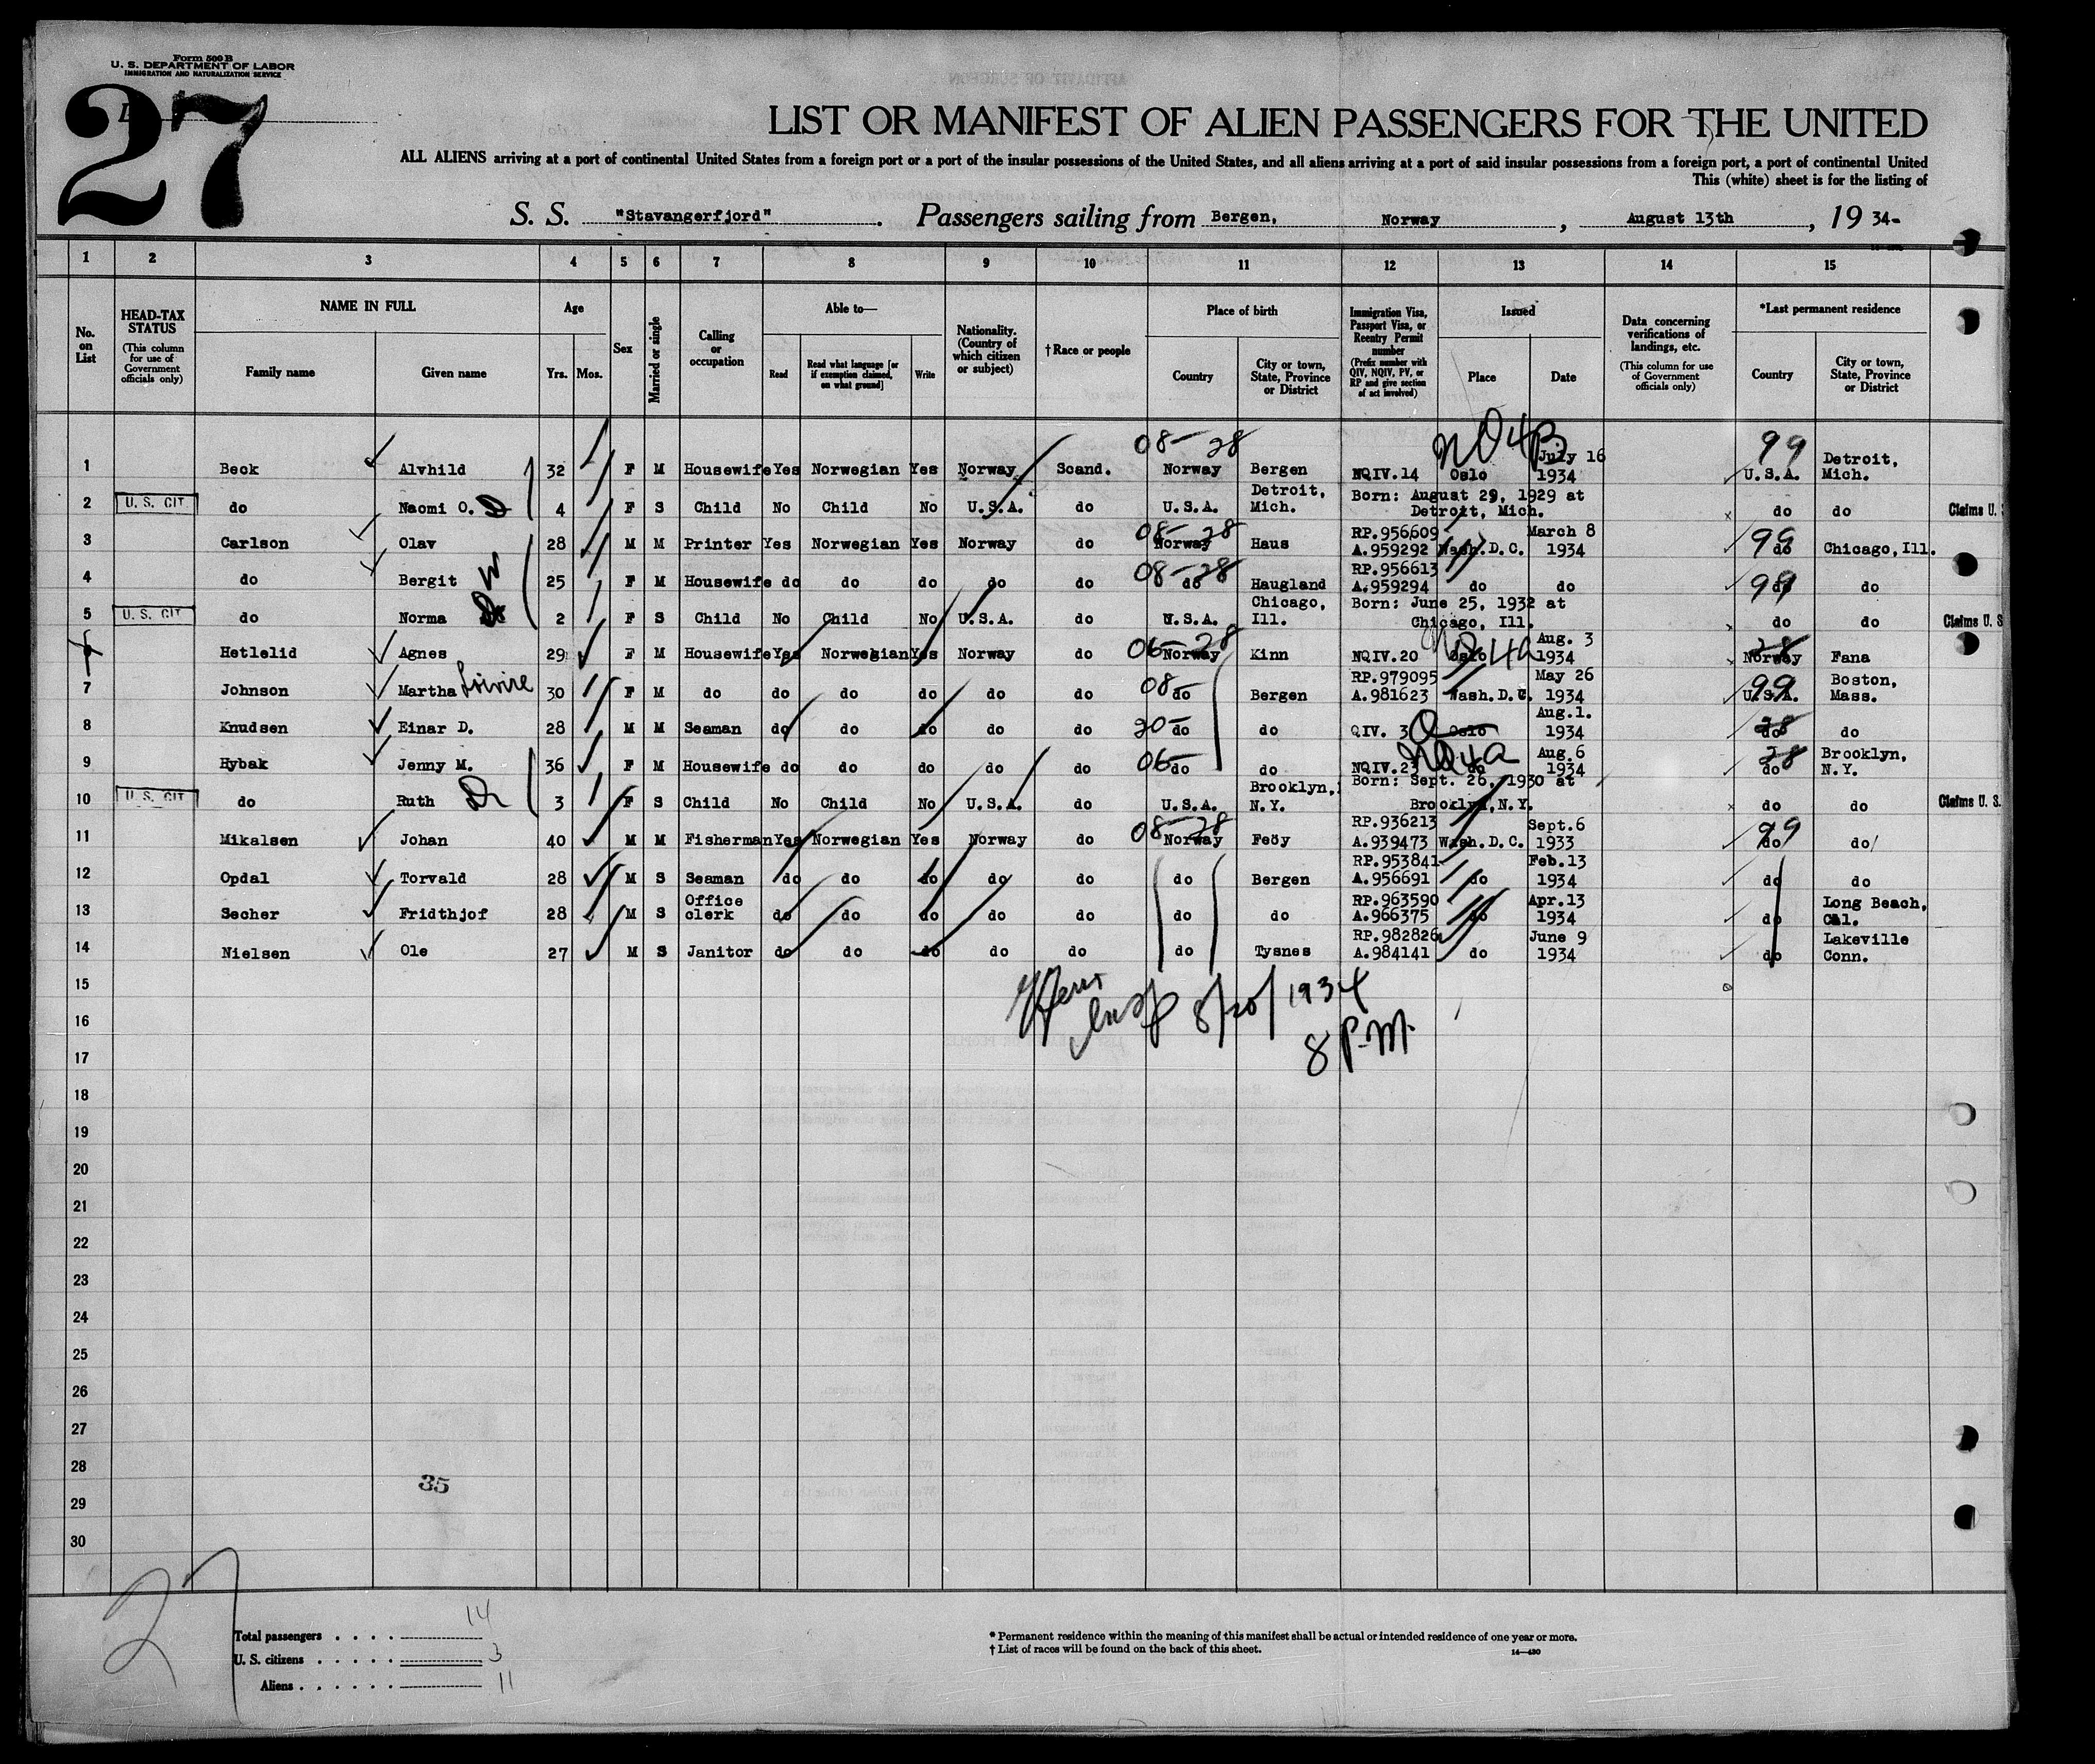 Form 500 B
U. S. DEPARTMENT OF LABOR
IMMIGRATION AND NATURALIZATION SERVICE
27
LIST OR MANIFEST OF ALIEN PASSENGERS FOR THE UNITED
ALL ALIENS arriving at a port of continental United States from a foreign port or a port of the insular possessions of the United States, and all aliens arriving at a port of said insular possessions from a foreign port, a port of continental United
This (white) sheet is for the listing of
S. S. "Stavangerfjord". Passengers sailing from Bergen, Norway, August 13th, 19 34-
1 2 3 4 5 6 7 8 9 10 11 12 13 14 15
No. on List
HEAD-TAX STATUS
(This column for use of Government officials only)
NAME IN FULL
Family name Given name
Age
Yrs. Mos.
Sex
Married or single
Calling or occupation
Able to—
Read
Read what language [or if exemption claimed, on what ground]
Write
Nationality. (Country of which citizen or subject)
† Race or people
Place of birth
Country
City or town, State, Province or District
Immigration Visa, Passport Visa, or Reentry Permit number
(Prefix number with QIV, NQIV, PV, or RP and give section of act involved)
Issued
Place Date
Data concerning verifications of landings, etc.
(This column for use of Government officials only)
*Last permanent residence
Country
City or town, State, Province or District
08- 28 NO4B 99
1 Beck Alvhild 32 F M Housewife Yes Norwegian Yes Norway Scand. Norway Bergen NQIV.14 Oslo July 16 1934 U.S.A. Detroit, Mich.
2 U. S. CIT do Naomi O. 4 F S Child No Child No U.S.A. do U.S.A. Detroit, Mich. Born: August 29, 1929 at Detroit, Mich. do do Claims U.
3 Carlson Olav 28 M M Printer Yes Norwegian Yes Norway do 08- 28 Norway Haus RP.956609 A.959292 Wash.D.C. March 8 1934 99 do Chicago, Ill.
4 do Bergit 25 F M Housewife do do do do do 08-28 do Haugland RP.956613 A.959294 do do 99 do do
5 U. S. CIT do Norma 2 F S Child No Child No U.S.A. do U.S.A. Chicago, Ill. Born: June 25, 1932 at Chicago, Ill. do do Claims U. S
6 Hetlelid Agnes 29 F M Housewife Yes Norwegian Yes Norway do 06-28 Norway Kinn NQIV.20 Oslo Aug. 3 1934 28 Norway Fana
7 Johnson Martha 30 F M do do do do do do 08- do Bergen RP.979095 A.981623 Wash.D.C. May 26 1934 99 U.S.A. Boston, Mass.
8 Knudsen Einar D. 28 M M Seaman do do do do do 20- do do QIV. 3 Q Oslo Aug.1. 1934 28 do do
9 Hybak Jenny M. 36 F M Housewife do do do do do 06- do do NQIV.23 NO4a do Aug.6 1934 28 do Brooklyn, N.Y.
10 U. S. CIT do Ruth 3 F S Child No Child No U.S.A. do U.S.A. Brooklyn, N.Y. Born: Sept. 26, 1930 at Brooklyn, N.Y. do do Claims U. S.
11 Mikalsen Johan 40 M M Fisherman Yes Norwegian Yes Norway do 08-28 Norway Feöy RP.936213 A.939473 Wash.D.C. Sept.6 1933 99 do do
12 Opdal Torvald 28 M S Seaman do do do do do do Bergen RP.953841 A.956691 do Feb.13 1934 do do
13 Secher Fridthjof 28 M S Office clerk do do do do do do do RP.963590 A.966375 do Apr.13 1934 do Long Beach, Cal.
14 Nielsen Ole 27 M S Janitor do do do do do do Tysnes RP.982826 A.984141 do June 9 1934 do Lakeville Conn.
15
Insp 8/20/1934
16
8 P.M.
17
18
19
20
21
22
23
24
25
26
27
28
35
29
30
27
Total passengers . . . . 14
U. S. citizens . . . . . 3
Aliens . . . . . . 11
* Permanent residence within the meaning of this manifest shall be actual or intended residence of one year or more.
† List of races will be found on the back of this sheet.
14—430